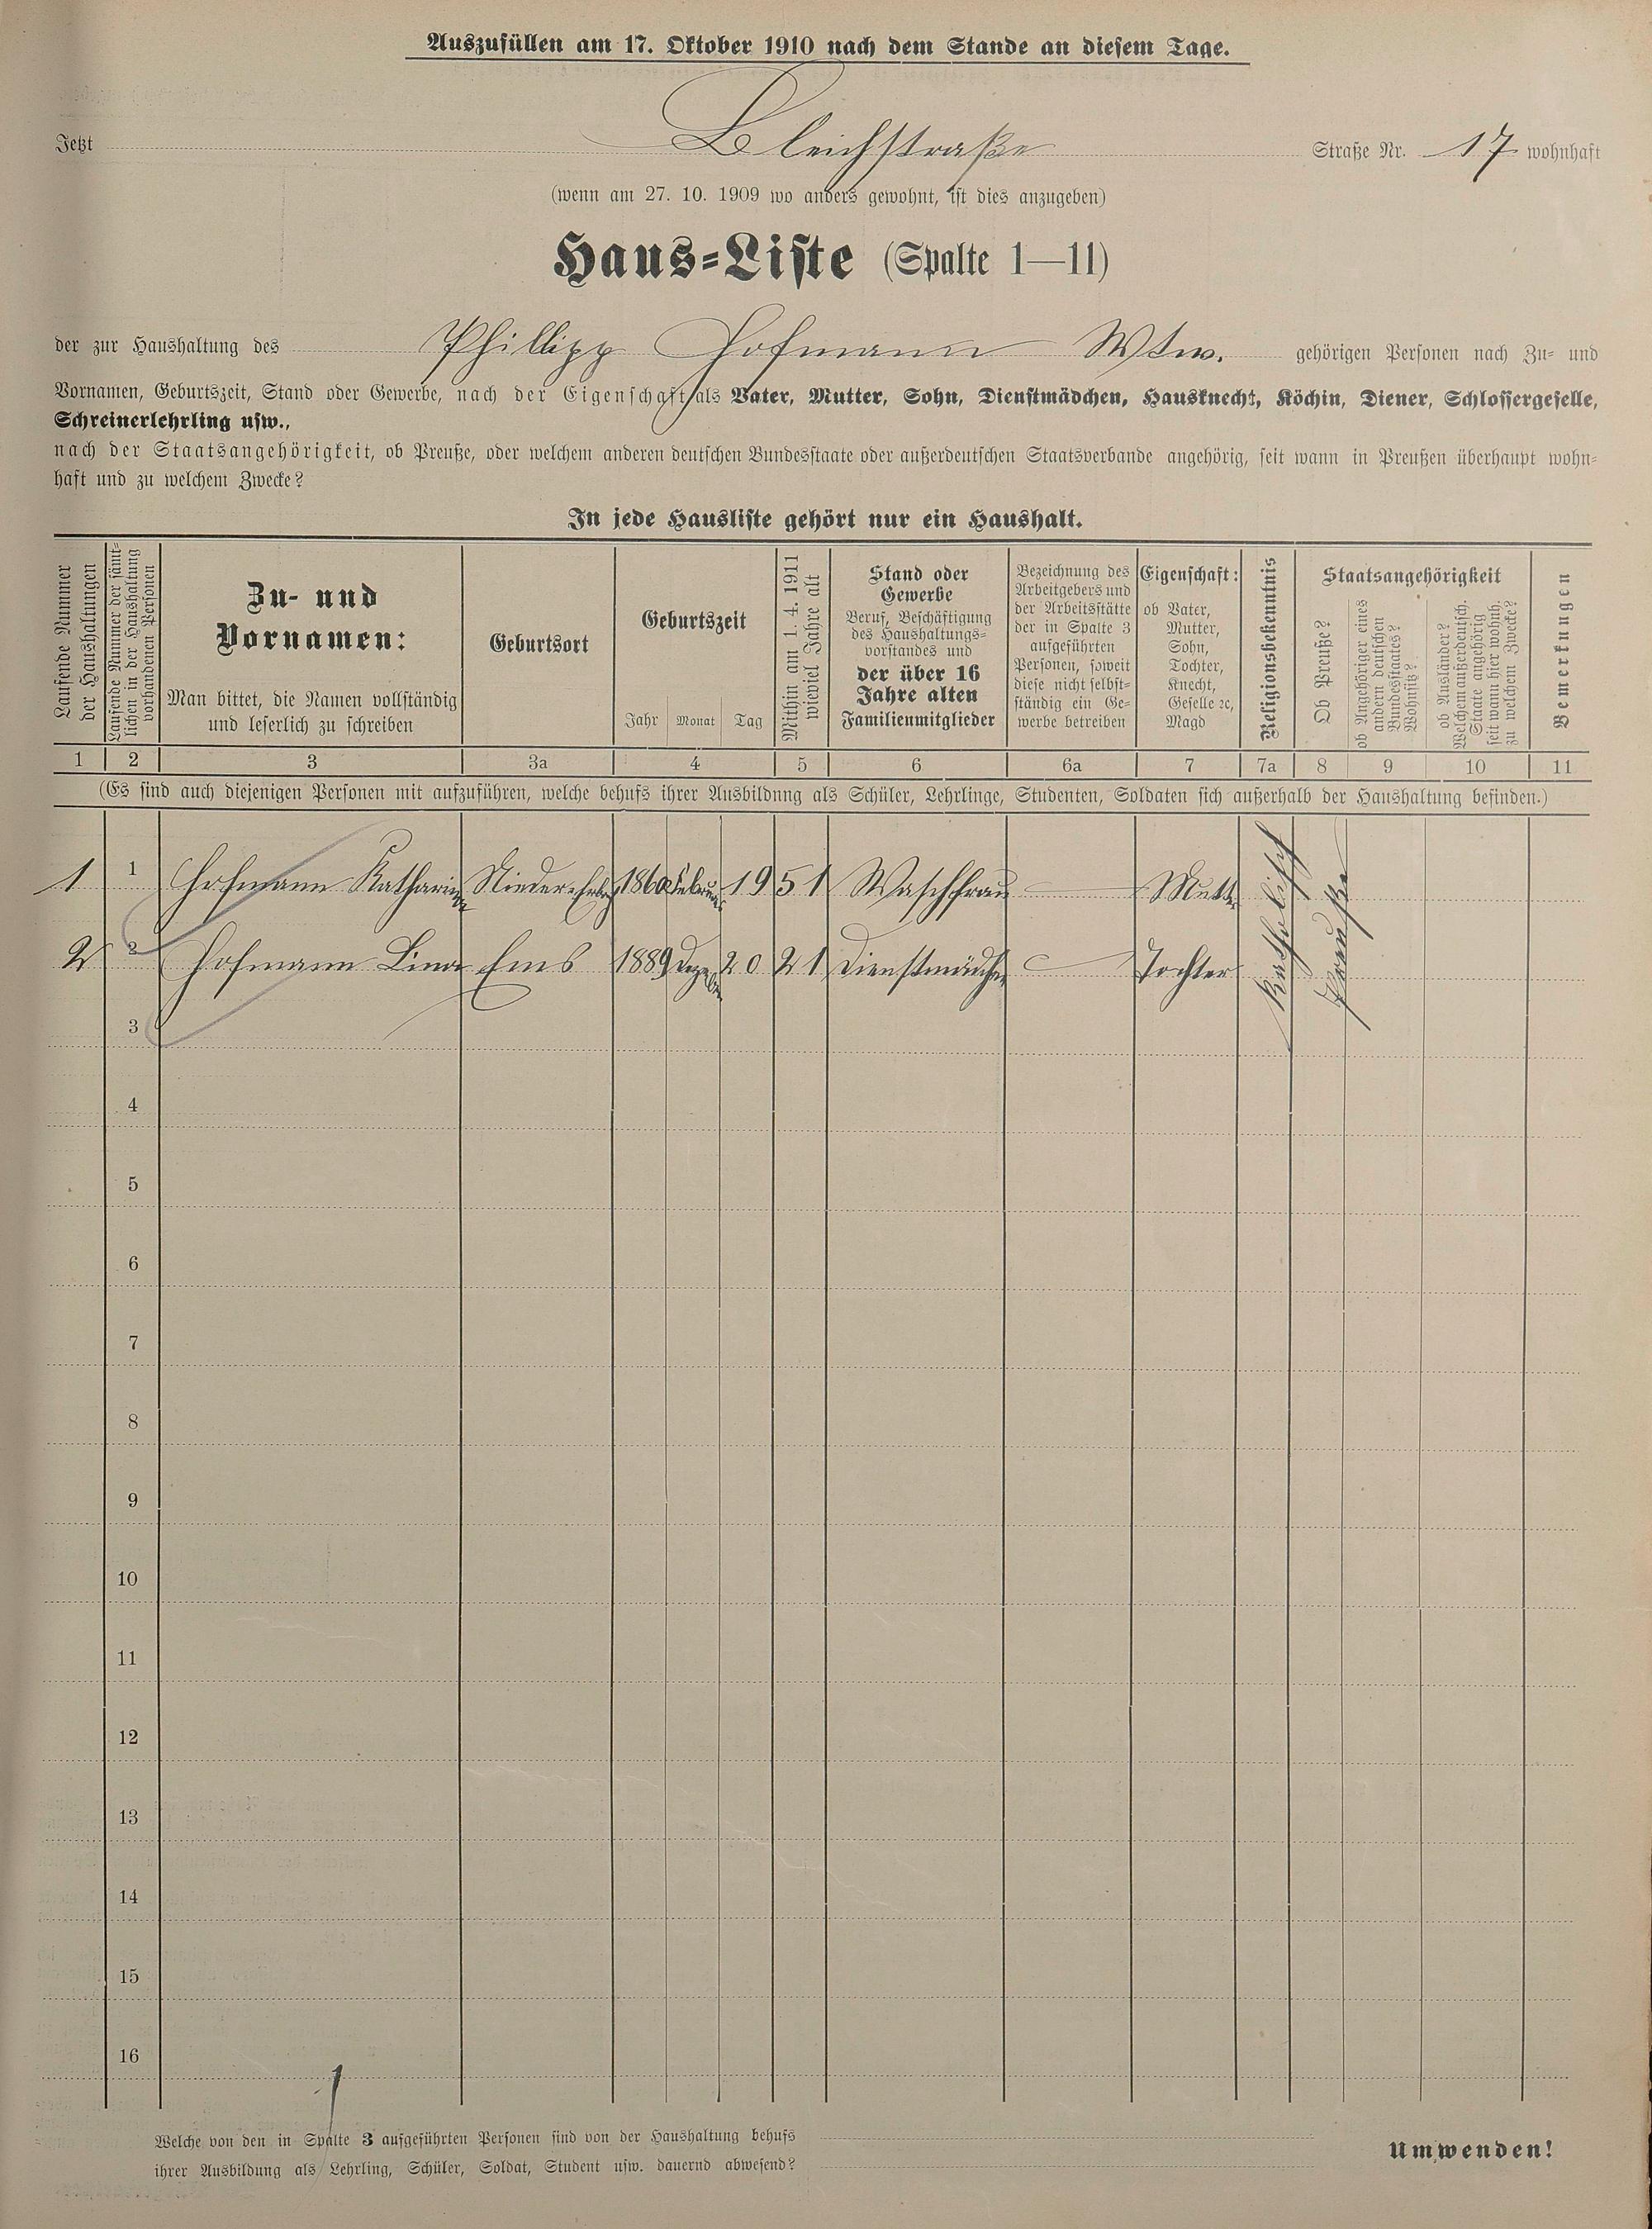 Auszufüllen am 17. Oktober 1910 nach dem Stande an diesem Tage.
Jetzt Bleichstraße Straße Nr. 17 wohnhaft
(wenn am 27. 10. 1909 wo anders gewohnt, ist dies anzugeben)
Haus-Liste (Spalte 1—11)
der zur Haushaltung des Phillipp Hofmann Wtw. gehörigen Personen nach Zu- und
Vornamen, Geburtszeit, Stand oder Gewerbe, nach der Eigenschaft als Vater, Mutter, Sohn, Dienstmädchen, Hausknecht, Köchin, Diener, Schlossergeselle,
Schreinerlehrling usw.,
nach der Staatsangehörigkeit, ob Preuße, oder welchem anderen deutschen Bundesstaate oder außerdeutschen Staatsverbande angehörig, seit wann in Preußen überhaupt wohn-
haft und zu welchem Zwecke?
In jede Hausliste gehört nur ein Haushalt.
Laufende Nummer
der Haushaltungen
Laufende Nummer der sämt-
lichen in der Haushaltung
vorhandenen Personen
Zu- und
Vornamen:
Man bittet, die Namen vollständig
und leserlich zu schreiben
Geburtsort
Geburtszeit
Jahr Monat Tag
Mithin am 1. 4. 1911
wieviel Jahre alt
Stand oder
Gewerbe
Beruf, Beschäftigung
des Haushaltungs-
vorstandes und
der über 16
Jahre alten
Familienmitglieder
Bezeichnung des
Arbeitgebers und
der Arbeitsstätte
der in Spalte 3
aufgeführten
Personen, soweit
diese nicht selbst-
ständig ein Ge-
werbe betreiben
Eigenschaft:
ob Vater,
Mutter,
Sohn,
Tochter,
Knecht,
Geselle ꝛc,
Magd
Religionsbekenntnis
Staatsangehörigkeit
Ob Preuße?
ob Angehöriger eines
andern deutschen
Bundesstaates?
Wohnsitz?
ob Ausländer?
Welchem außerdeutsch.
Staate angehörig
seit wann hier wohnh.
zu welchem Zwecke?
Bemerkungen
1 2 3 3a 4 5 6 6a 7 7a 8 9 10 11
(Es sind auch diejenigen Personen mit aufzuführen, welche behufs ihrer Ausbildung als Schüler, Lehrlinge, Studenten, Soldaten sich außerhalb der Haushaltung befinden.)
1 1 Hofmann Katharina 1860 Februar 19 51 Waschfrau Mutter Katholisch Preuße
2 2 Hofmann Lina Ems 1889 Dezember 20 21 Dienstmädchen Tochter
3
4
5
6
7
8
9
10
11
12
13
14
15
16
Welche von den in Spalte 3 aufgeführten Personen sind von der Haushaltung behufs
ihrer Ausbildung als Lehrling, Schüler, Soldat, Student usw. dauernd abwesend?
Umwenden!